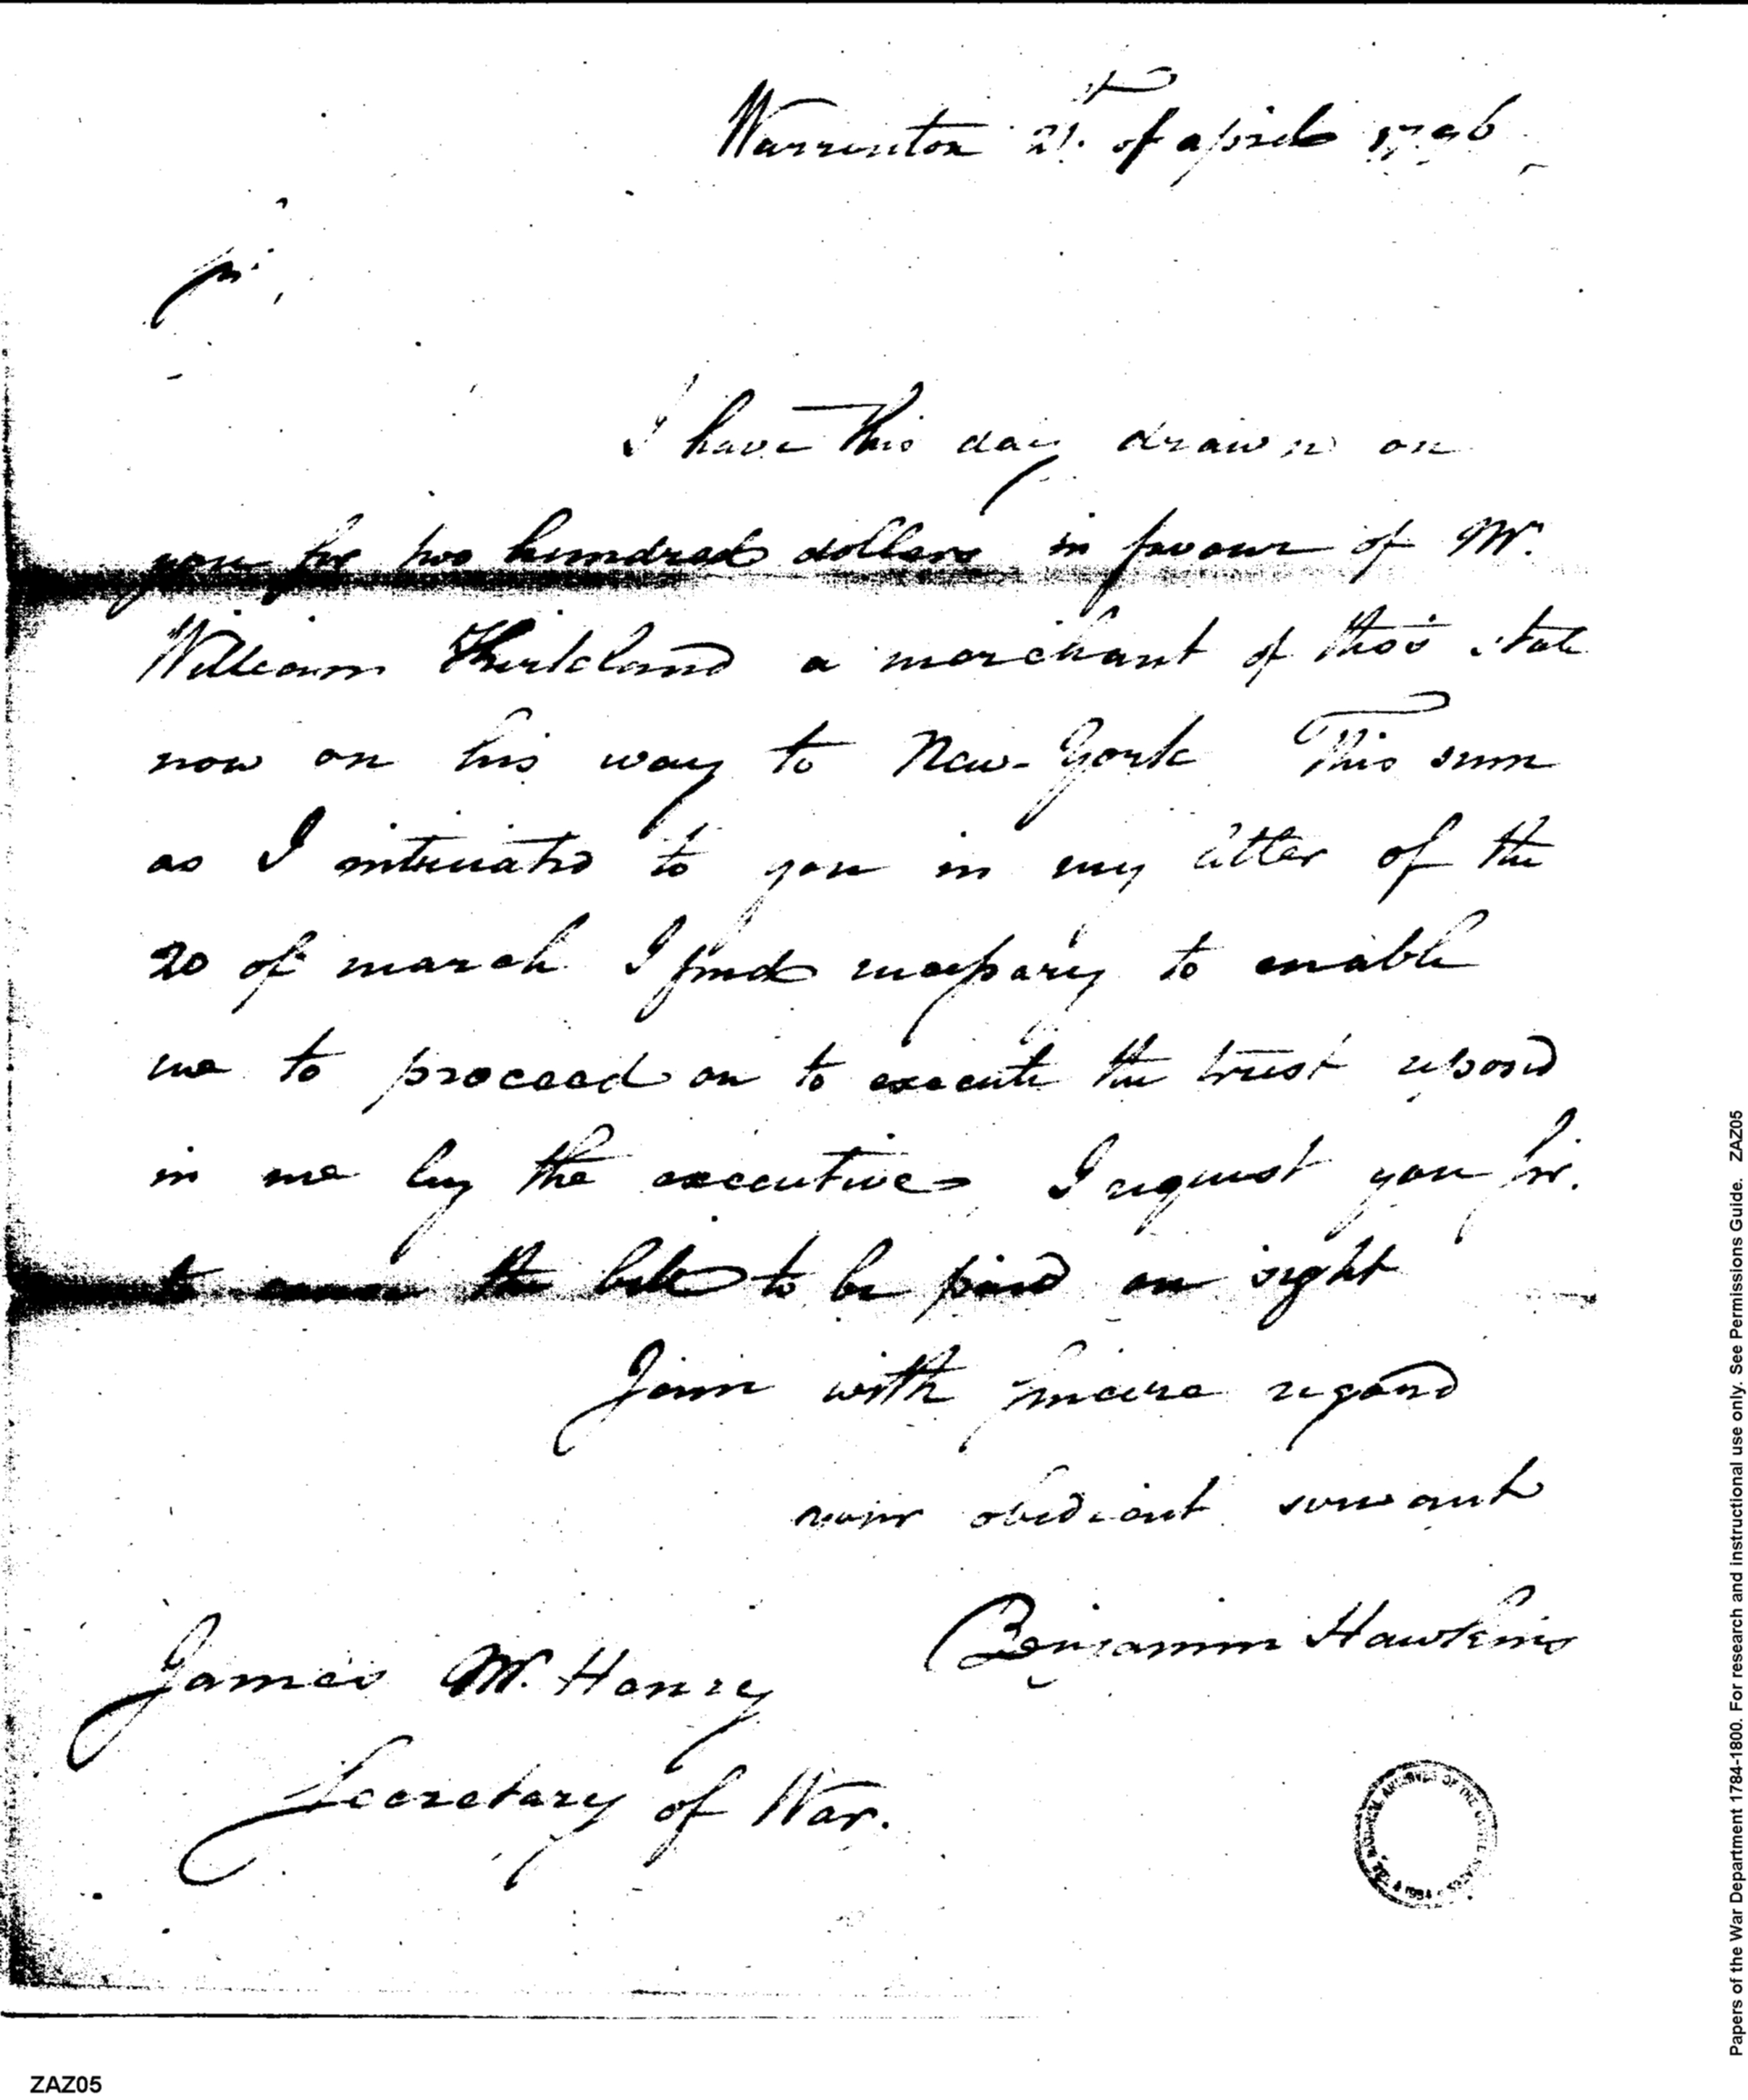 Warrenton 21st of april 1796
Sir,
I have this day drawn on
you for two hundred dollars in favour of Mr.
William Kirkland a merchant of this state
now on his way to New-York This sum
as I intimated to you in my letter of the
20 of march I find necessary to enable
me to proceed on to execute the trust reposed
in me by the executive. I request you sir.
to cause the bill to be paid on sight
I am with sincere regard
your obedient servant
Benjamin Hawkins
James Mc. Henry
Secretary of War.
ARCHIVES OF THE UNITED STATES
ZAZ05
Papers of the War Department 1784-1800. For research and instructional use only. See Permissions Guide. ZAZ05